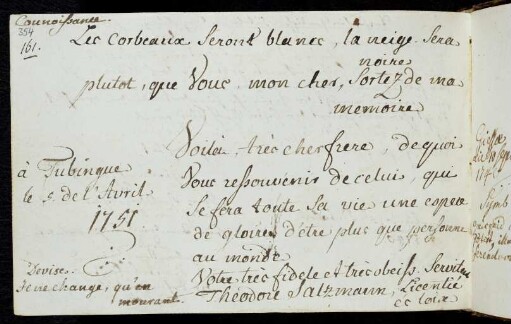 Connoissance.
354
161.
Les corbeaux seront blancs, la neige sera
noire
plutot, que Vous, mon cher, Sortez de ma
memoire
Voila, très cher frere, de quoi
Vous ressouvenir de celui, qui
se fera toute sa vie une espece
de gloire d'être plus que personne
au monde
Votre très fidele et très obeiss. Serviteur
Théodore Saltzmann, Licentié
ès loix
à Tubingue
le 5. de l'Avril
1751.
Devise.
Je ne change, qu'en
mourant.